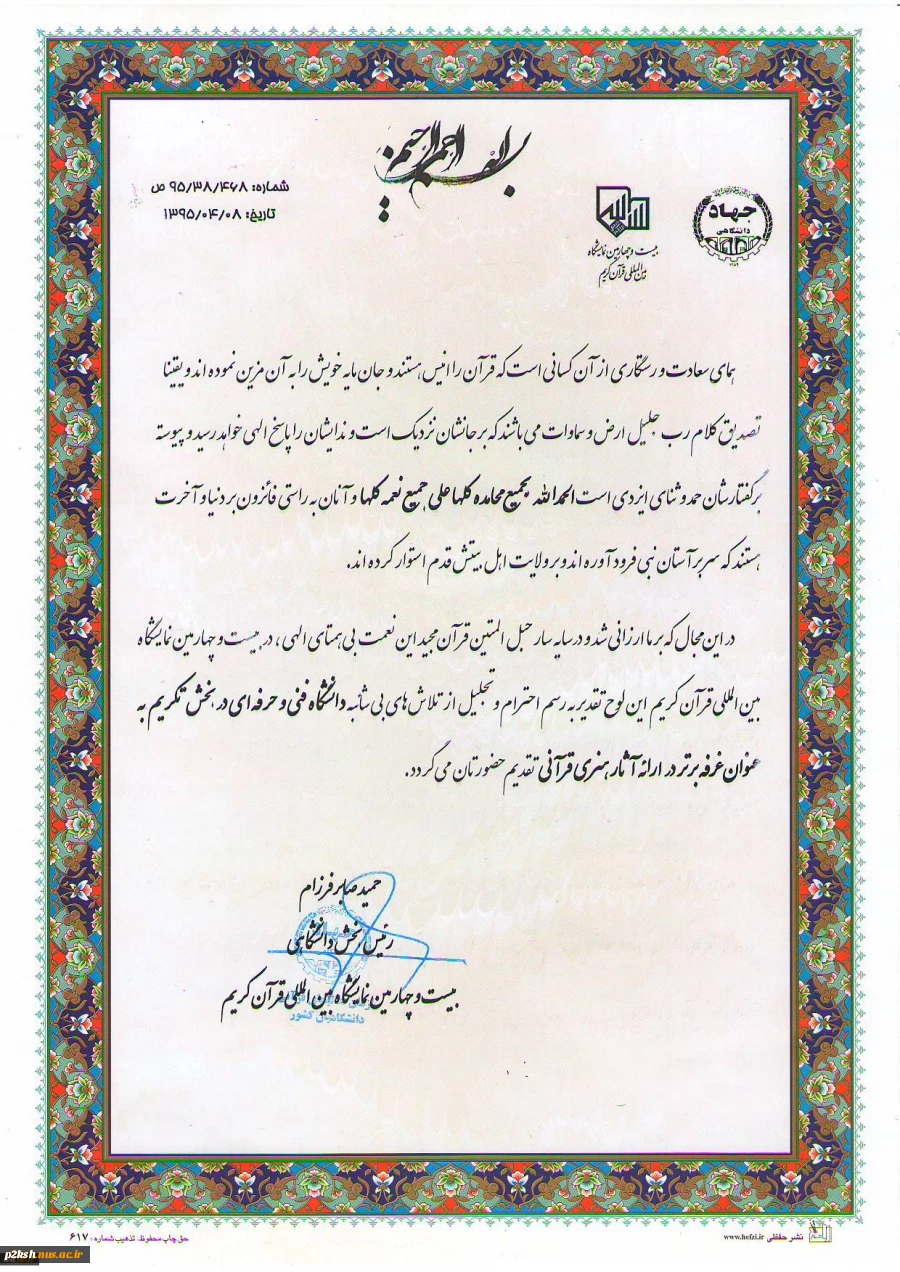 بسم الله الرحمن الرحیم
شماره: ۹۵/۳۸/۴۶۸ ص
تاریخ: ۱۳۹۵/۰۴/۰۸
جهاد
دانشگاهی
بیست و چهارمین نمایشگاه
بین المللی قرآن کریم
همای سعادت و رستگاری از آن کسانی است که قرآن را انیس هستند و جان مایه خویش را به آن مزین نموده اند و یقینا
تصدیق کلام رب جلیل ارض و سماوات می باشند که بر جانشان نزدیک است و ندایشان را پاسخ الهی خواهد رسید و پیوسته
بر گفتارشان حمد و ثنای ایزدی است الحمدالله بجمیع محامده کلها علی جمیع نعمه کلها و آنان به راستی فائزون بر دنیا و آخرت
هستند که سر بر آستان نبی فرود آوره اند و بر ولایت اهل بیتش قدم استوار کرده اند.
در این مجال که بر ما ارزانی شد و در سایه سار حبل المتین قرآن مجید این نعمت بی همتای الهی، در بیست و چهارمین نمایشگاه
بین المللی قرآن کریم این لوح تقدیر به رسم احترام و تجلیل از تلاش های بی شائبه دانشگاه فنی و حرفه ای در بخش تکریم به
عنوان غرفه برتر در ارائه آثار هنری قرآنی تقدیم حضورتان می گردد.
حمید صابر فرزام
رئیس بخش دانشگاهی
بیست و چهارمین نمایشگاه بین المللی قرآن کریم
دانشگاهیان کشور
نشر حفظی www.hefzi.ir
حق چاپ محفوظ. تذهیب شماره: ۶۱۷
p2ksh.nus.ac.ir